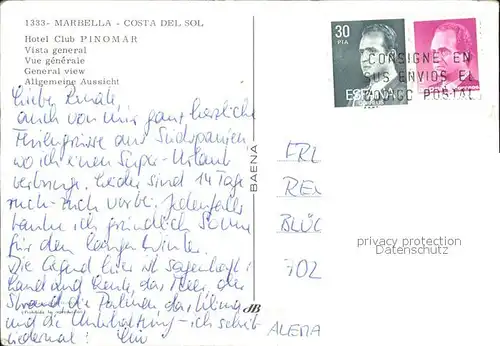 1333- MARBELLA - COSTA DEL SOL
Hotel Club PINOMAR
Vista general
Vue générale
General view
Allgemeine Aussicht
30
PTA
ESPAÑA
CONSIGNE EN
SUS ENVIOS EL
CODIGO POSTAL
Liebe Renate,
auch von mir ganz herzliche
Feriengrüsse aus Südspanien,
wo ich einen Super-Urlaub
verbringe. Leider sind 14 Tage
ruck-zuck vorbei, jedenfalls
tanke ich gründlich Sonne
für den langen Winter.
Die Gegend hier ist sagenhaft:
Land und Leute, das Meer, der
Strand, die Palmen, das Klima
und die Unterhaltung - ich schreib
BAENA
JB
FRL
REN
BLÜC
702
ALEMA
privacy protection
Datenschutz